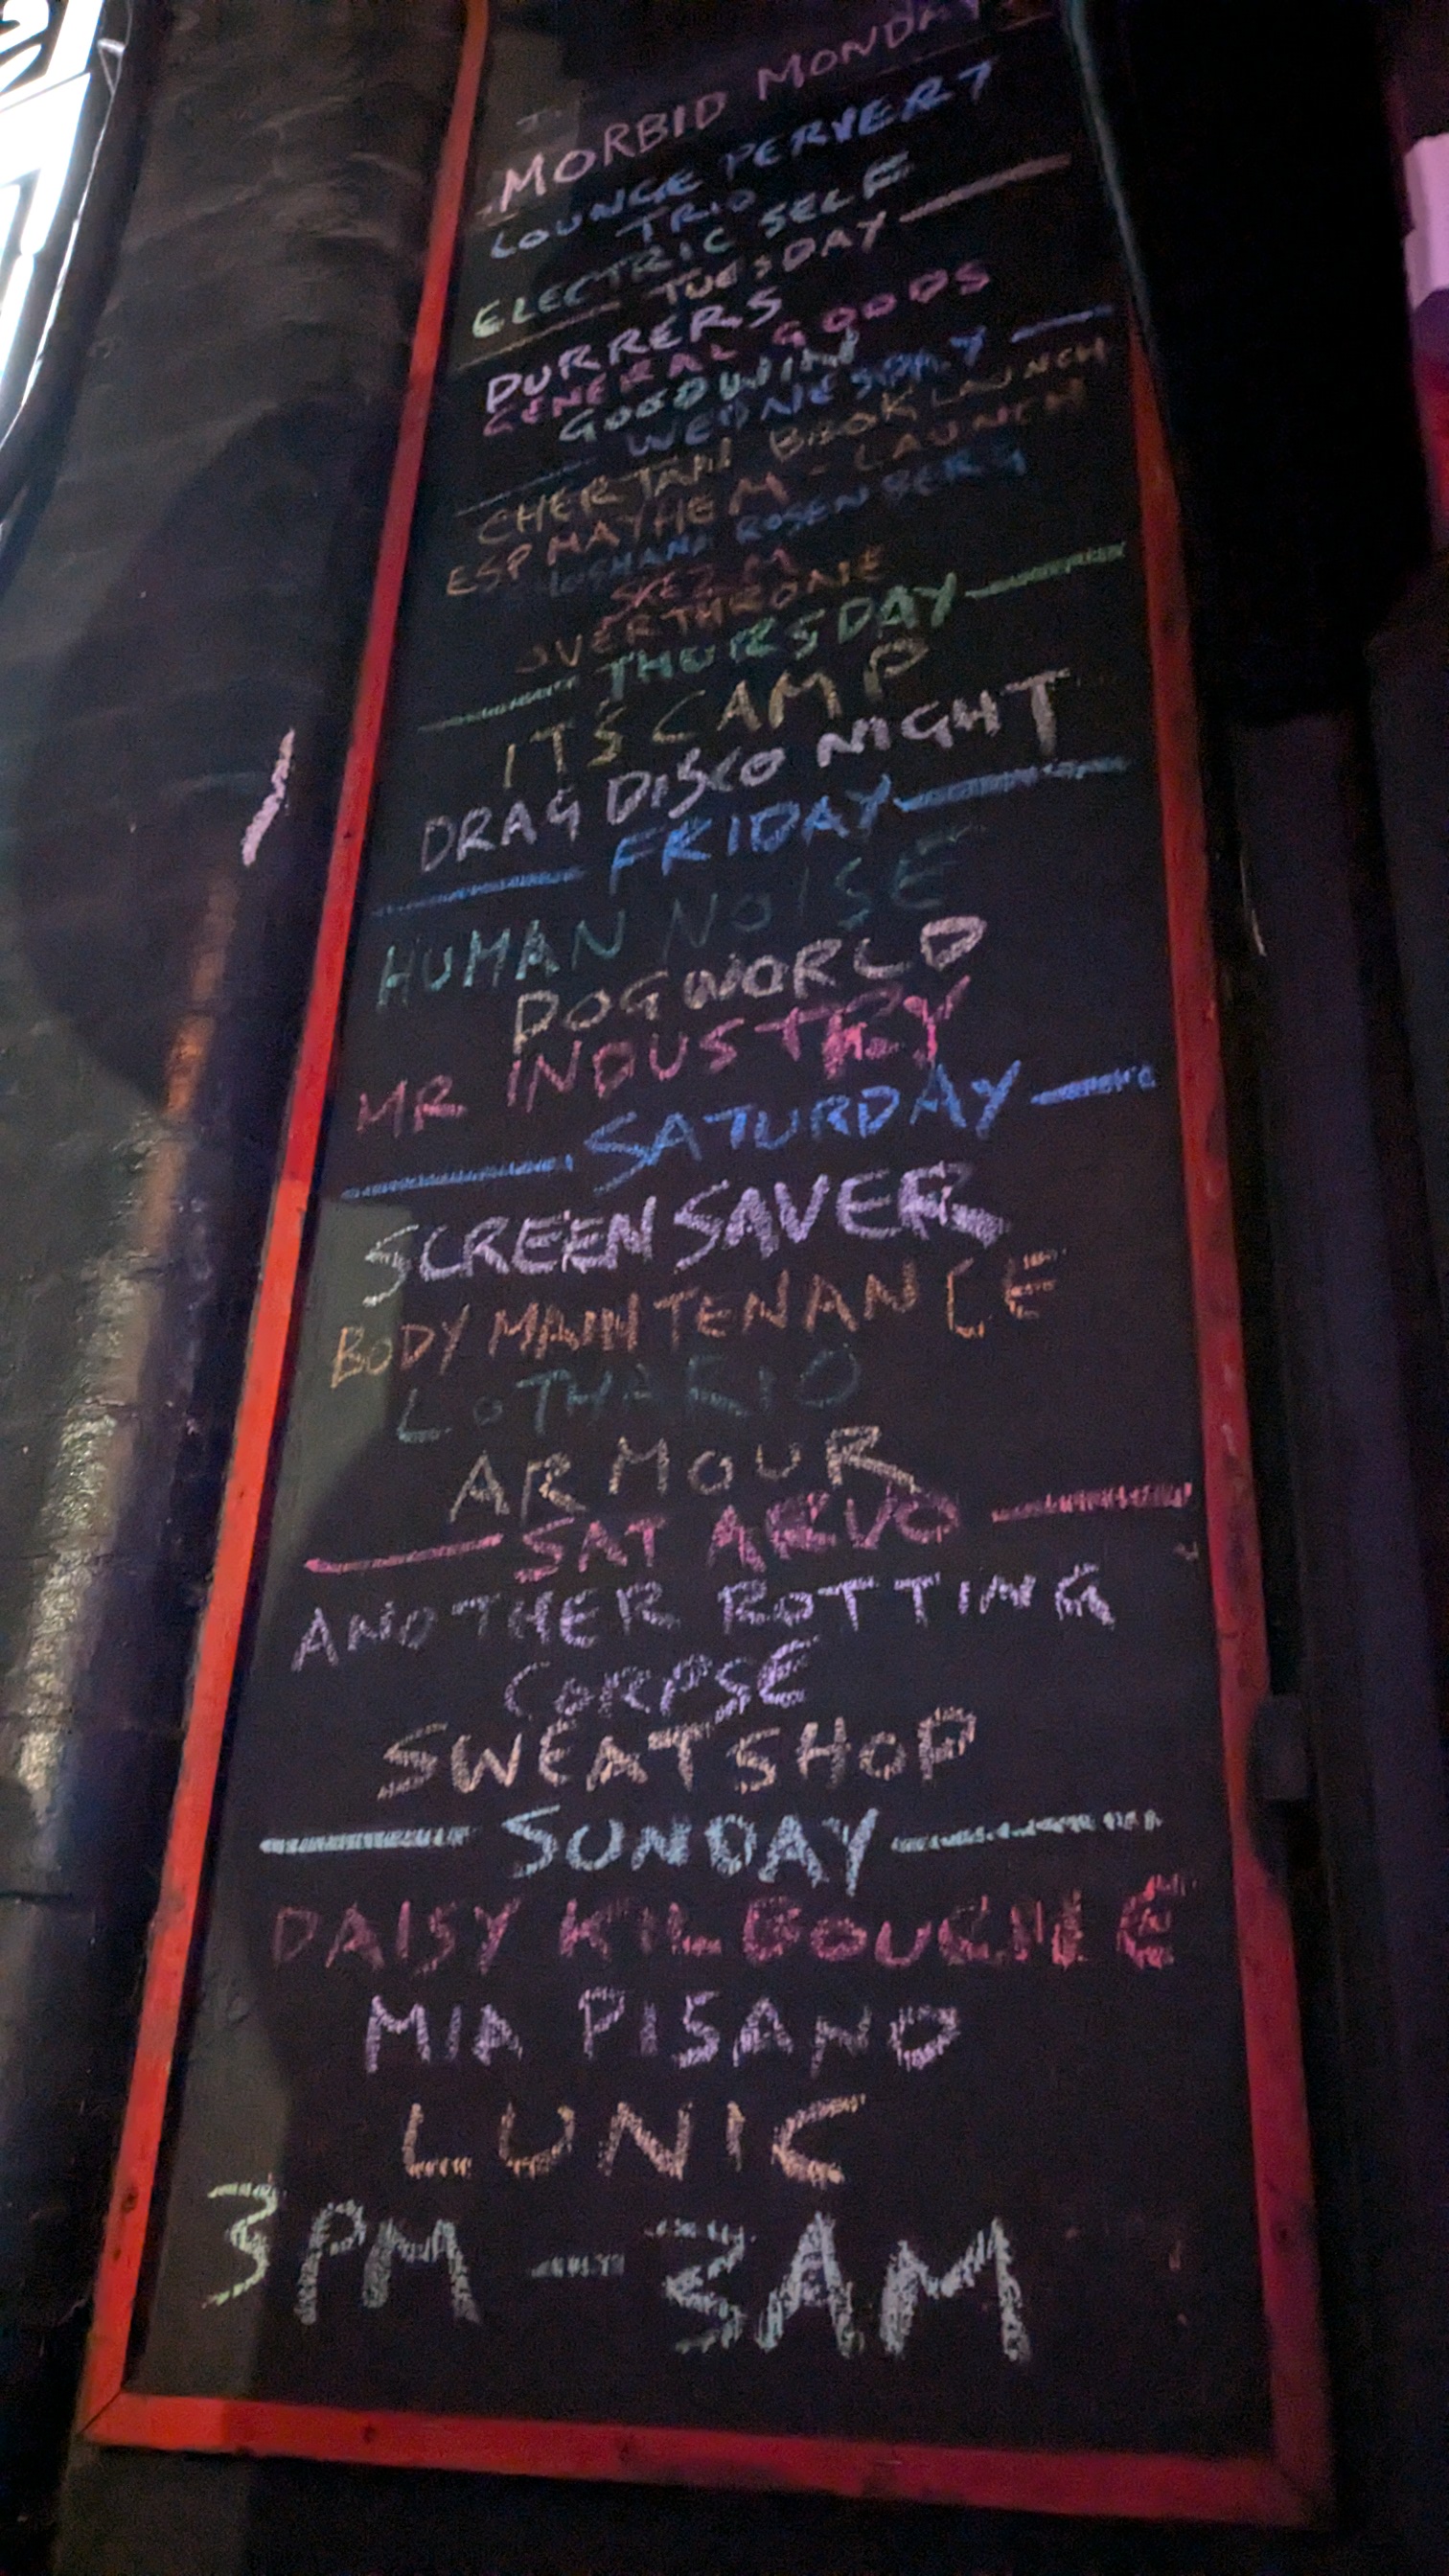 MORBID MONDAY
LOUNGE PERVERT
TRIO
ELECTRIC SELF
TUESDAY
DURRERS
GENERAL GOODS
GOODWIN
WEDNESDAY
BOOK LAUNCH
ESP MAYHEM - LAUNCH
ROSENBERG
OVERTHRONE
THURSDAY
ITS CAMP
DRAG DISCO NIGHT
FRIDAY
HUMAN NOISE
DOGWORLD
MR INDUSTRY
SATURDAY
SCREENSAVER
BODY MAINTENANCE
LOTHARIO
ARMOUR
SAT ARVO
ANOTHER ROTTING
CORPSE
SWEATSHOP
SUNDAY
DAISY KILBOURNE
MIA PISANO
LUNIC
3PM - 3AM